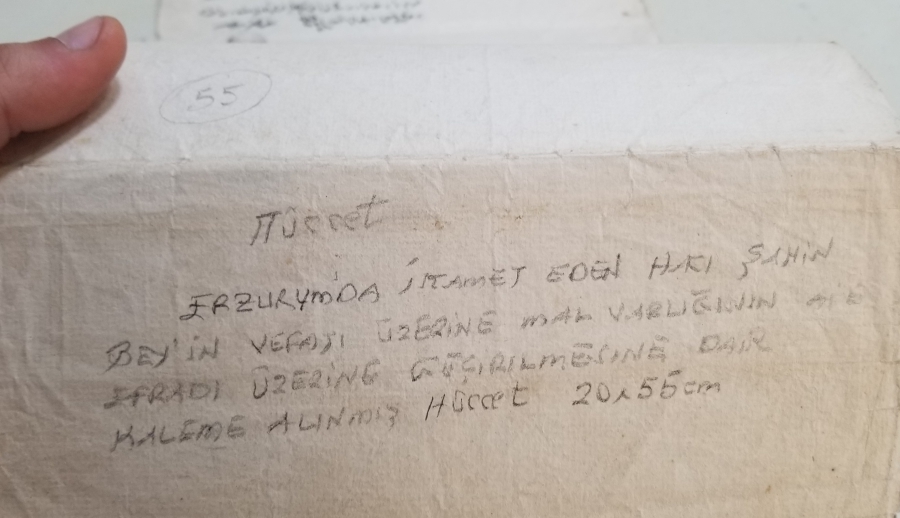 55
Hüccet
ERZURUMDA İKAMET EDEN HAKI ŞAHİN
BEY'İN VEFATI ÜZERİNE MAL VARLIĞININ AİLE
EFRADI ÜZERİNE GEÇİRİLMESİNE DAİR
KALEME ALINMIŞ Hüccet 20x55cm